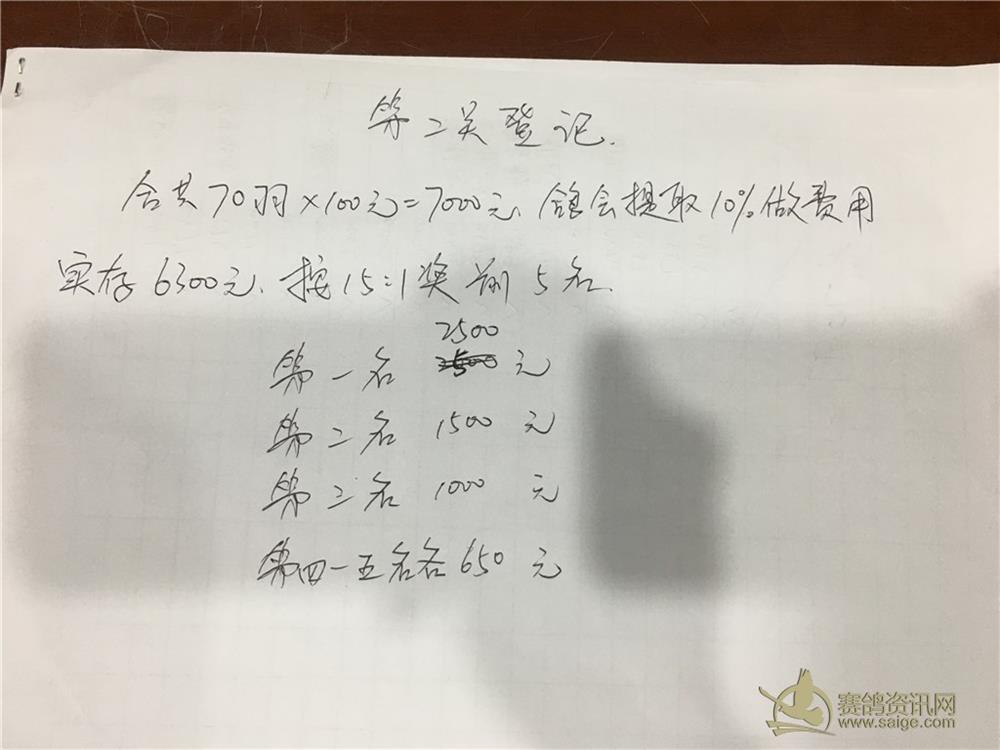 第二关登记.
合共70羽×100元=7000元、鸽会提取10%做费用
实存6300元、按15:1奖前5名.
2500
第一名 元
第二名 1500 元
第三名 1000 元
第四一五名各650元
赛鸽资讯网
www.saige.com